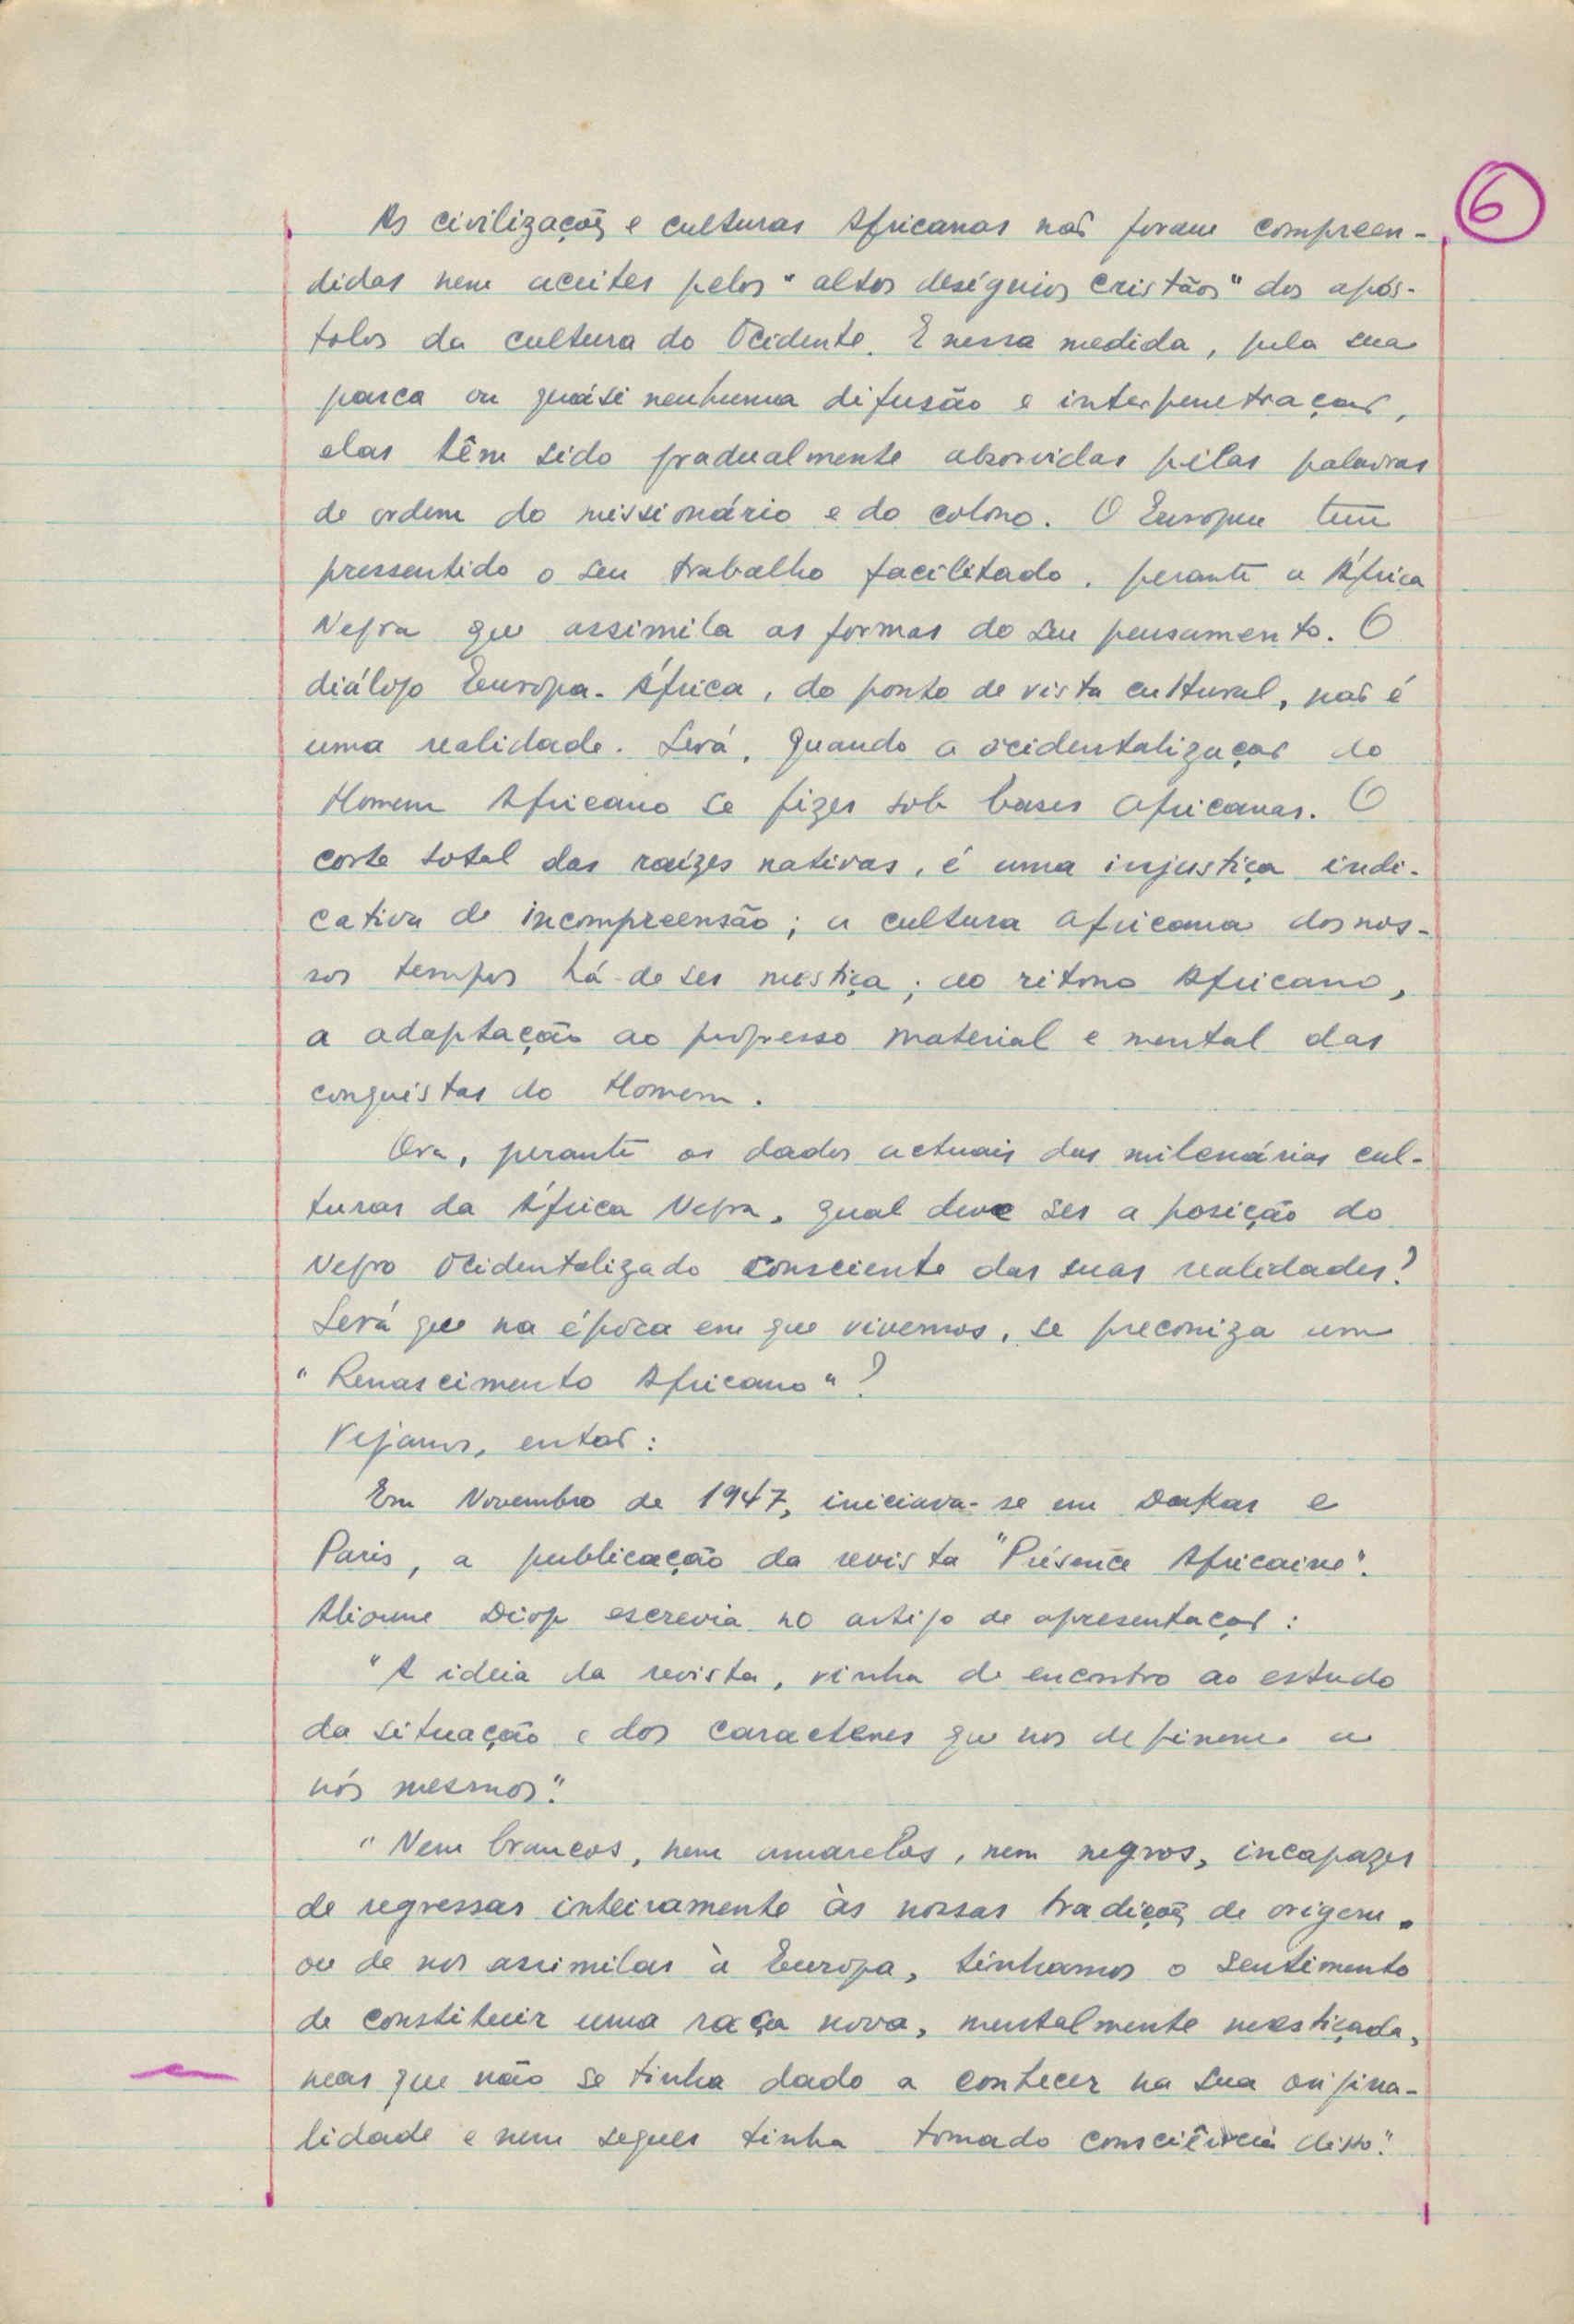 6
As civilizações e culturas Africanas não foram compreen-
didas nem aceites pelos "altos desígnios cristãos" dos após-
tolos da cultura do Ocidente. E nessa medida, pela sua
parca ou quási nenhuma difusão e interpenetração,
elas têm sido gradualmente absorvidas pelas palavras
de ordem do missionário e do colono. O Europeu tem
pressentido o seu trabalho facilitado, perante a África
Negra que assimila as formas do seu pensamento. O
diálogo Europa-África, do ponto de vista cultural, não é
uma realidade. Será, quando a ocidentalização do
Homem Africano se fizer sob bases africanas. O
corte total das raízes nativas, é uma injustiça indi-
cativa de incompreensão; a cultura africana dos nos-
sos tempos há-de ser mestiça; ao ritmo Africano,
a adaptação ao progresso material e mental das
conquistas do Homem.
Ora, perante os dados actuais das milenárias cul-
turas da África Negra, qual deve ser a posição do
Negro Ocidentalizado consciente das suas realidades?
Será que na época em que vivemos, se preconiza um
"Renascimento Africano"?
Vejamos, então:
Em Novembro de 1947, iniciava-se em Dakar e
Paris, a publicação da revista "Présence Africaine".
Alioune Diop escrevia no artigo de apresentação:
"A ideia da revista, vinha de encontro ao estudo
da situação e dos caracteres que nos definem a
nós mesmos".
"Nem brancos, nem amarelos, nem negros, incapazes
de regressar inteiramente às nossas tradições de origem,
ou de nos assimilar à Europa, tínhamos o sentimento
de constituir uma raça nova, mentalmente mestiçada,
mas que não se tinha dado a conhecer na sua origina-
lidade e nem sequer tinha tomado consciência disso".